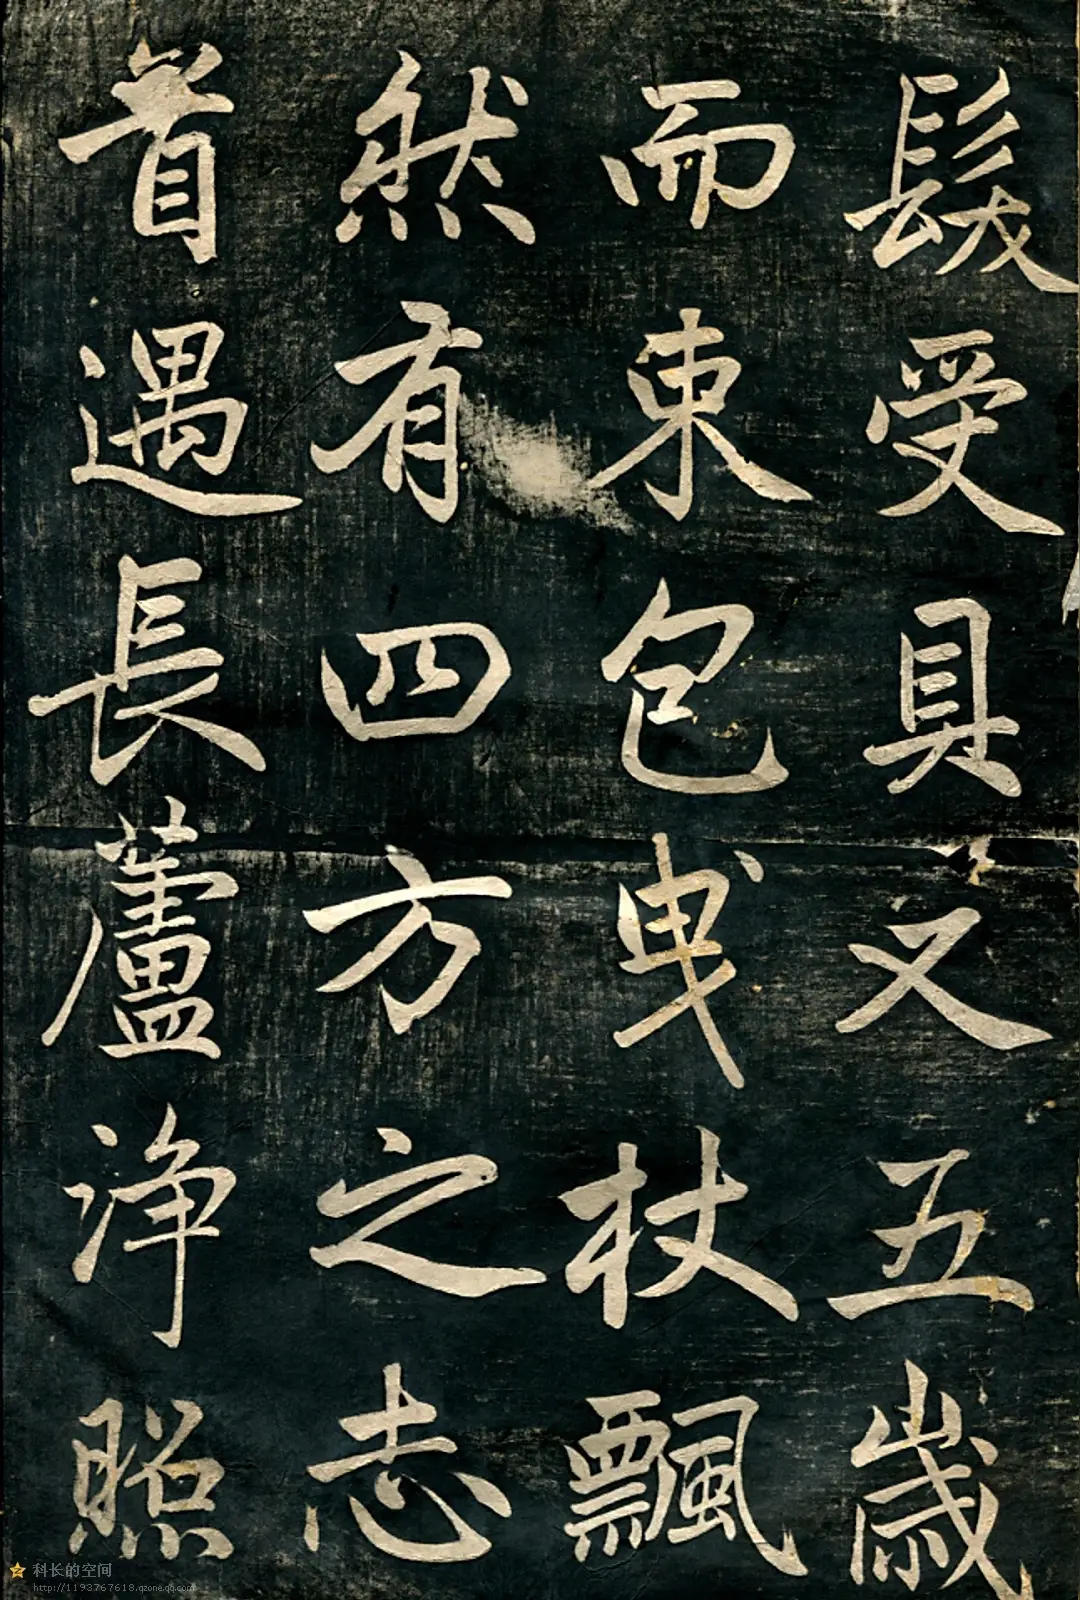 髮受具又五歲
而束包曳杖飄
然有四方之志
首遇長蘆淨照
科长的空间
http://1193767618.qzone.qq.com